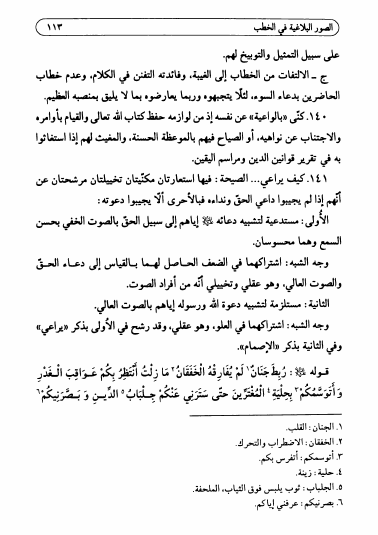 الصور البلاغية في الخطب ١١٣
على سبيل التمثيل والتوبيخ لهم.
ج ـ الالتفات من الخطاب إلى الغيبة، وفائدته التفنن في الكلام، وعدم خطاب
الحاضرين بدعاء السوء، لئلّا يتجبهوه وربما يعارضوه بما لا يليق بمنصبه العظيم.
١٤٠. كنّى «بالواعية» عن نفسه إذ من لوازمه حفظ كتاب الله تعالى والقيام بأوامره
والاجتناب عن نواهيه، أو الصياح فيهم بالموعظة الحسنة، والمغيث لهم إذا استغاثوا
به في تقرير قوانين الدين ومراسم اليقين.
١٤١. كيف يراعي... الصيحة: فيها استعارتان مكنّيتان تخييلتان مرشحتان عن
أنّهم إذا لم يجيبوا داعي الحقّ ونداءه فبالأحرى ألّا يجيبوا دعوته:
الأُولى: مستدعية لتشبيه دعائه ﷺ إياهم إلى سبيل الحقّ بالصوت الخفي بحسن
السمع وهما محسوسان.
وجه الشبه: اشتراكهما في الضعف الحاصل لهما بالقياس إلى دعاء الحقّ
والصوت العالي، وهو عقلي وتخييلي أنّه من أفراد الصوت.
الثانية: مستلزمة لتشبيه دعوة الله ورسوله إياهم بالصوت العالي.
وجه الشبه: اشتراكهما في العلو، وهو عقلي، وقد رشح في الأولى بذكر «يراعي»
وفي الثانية بذكر «الإصمام».
قوله : رُبِطَ جَنَانٌ١ لَمْ يُفَارِقْهُ الْخَفَقَانُ٢ مَا زِلْتُ أَنْتَظِرُ بِكُمْ عَوَاقِبَ الْغَدْرِ
وَ أَتَوَسَّمُكُمْ٣ بِحِلْيَةِ٤ الْمُغْتَرِّينَ حَتَّى سَتَرَنِي عَنْكُمْ جِلْبَابُ٥ الدِّينِ وَ بَصَّرَنِيكُمْ٦
١. الجنان: القلب.
٢. الخفقان: الاضطراب والتحرك.
٣. أتوسمكم: أتفرس بكم.
٤. حلية: زينة.
٥. الجلباب: ثوب يلبس فوق الثياب، الملحفة.
٦. بصرنيكم: عرفني إياكم.